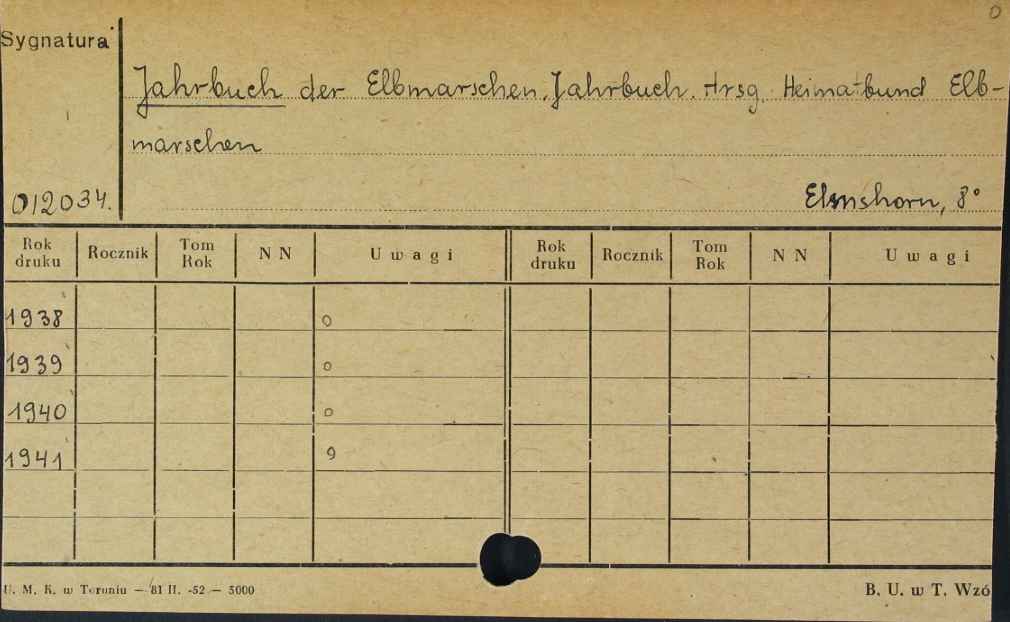 0
Sygnatura
Jahrbuch der Elbmarschen. Jahrbuch. Hrsg. Heimatbund Elb-
marschen
012034.
Elmshorn, 8°
Rok druku Rocznik Tom Rok N N Uwagi Rok druku Rocznik Tom Rok N N Uwagi
1938 o
1939 o
1940 o
1941 9
U. M. K. w Toruniu — 81 II. -52 — 5000
B. U. w T. Wzó